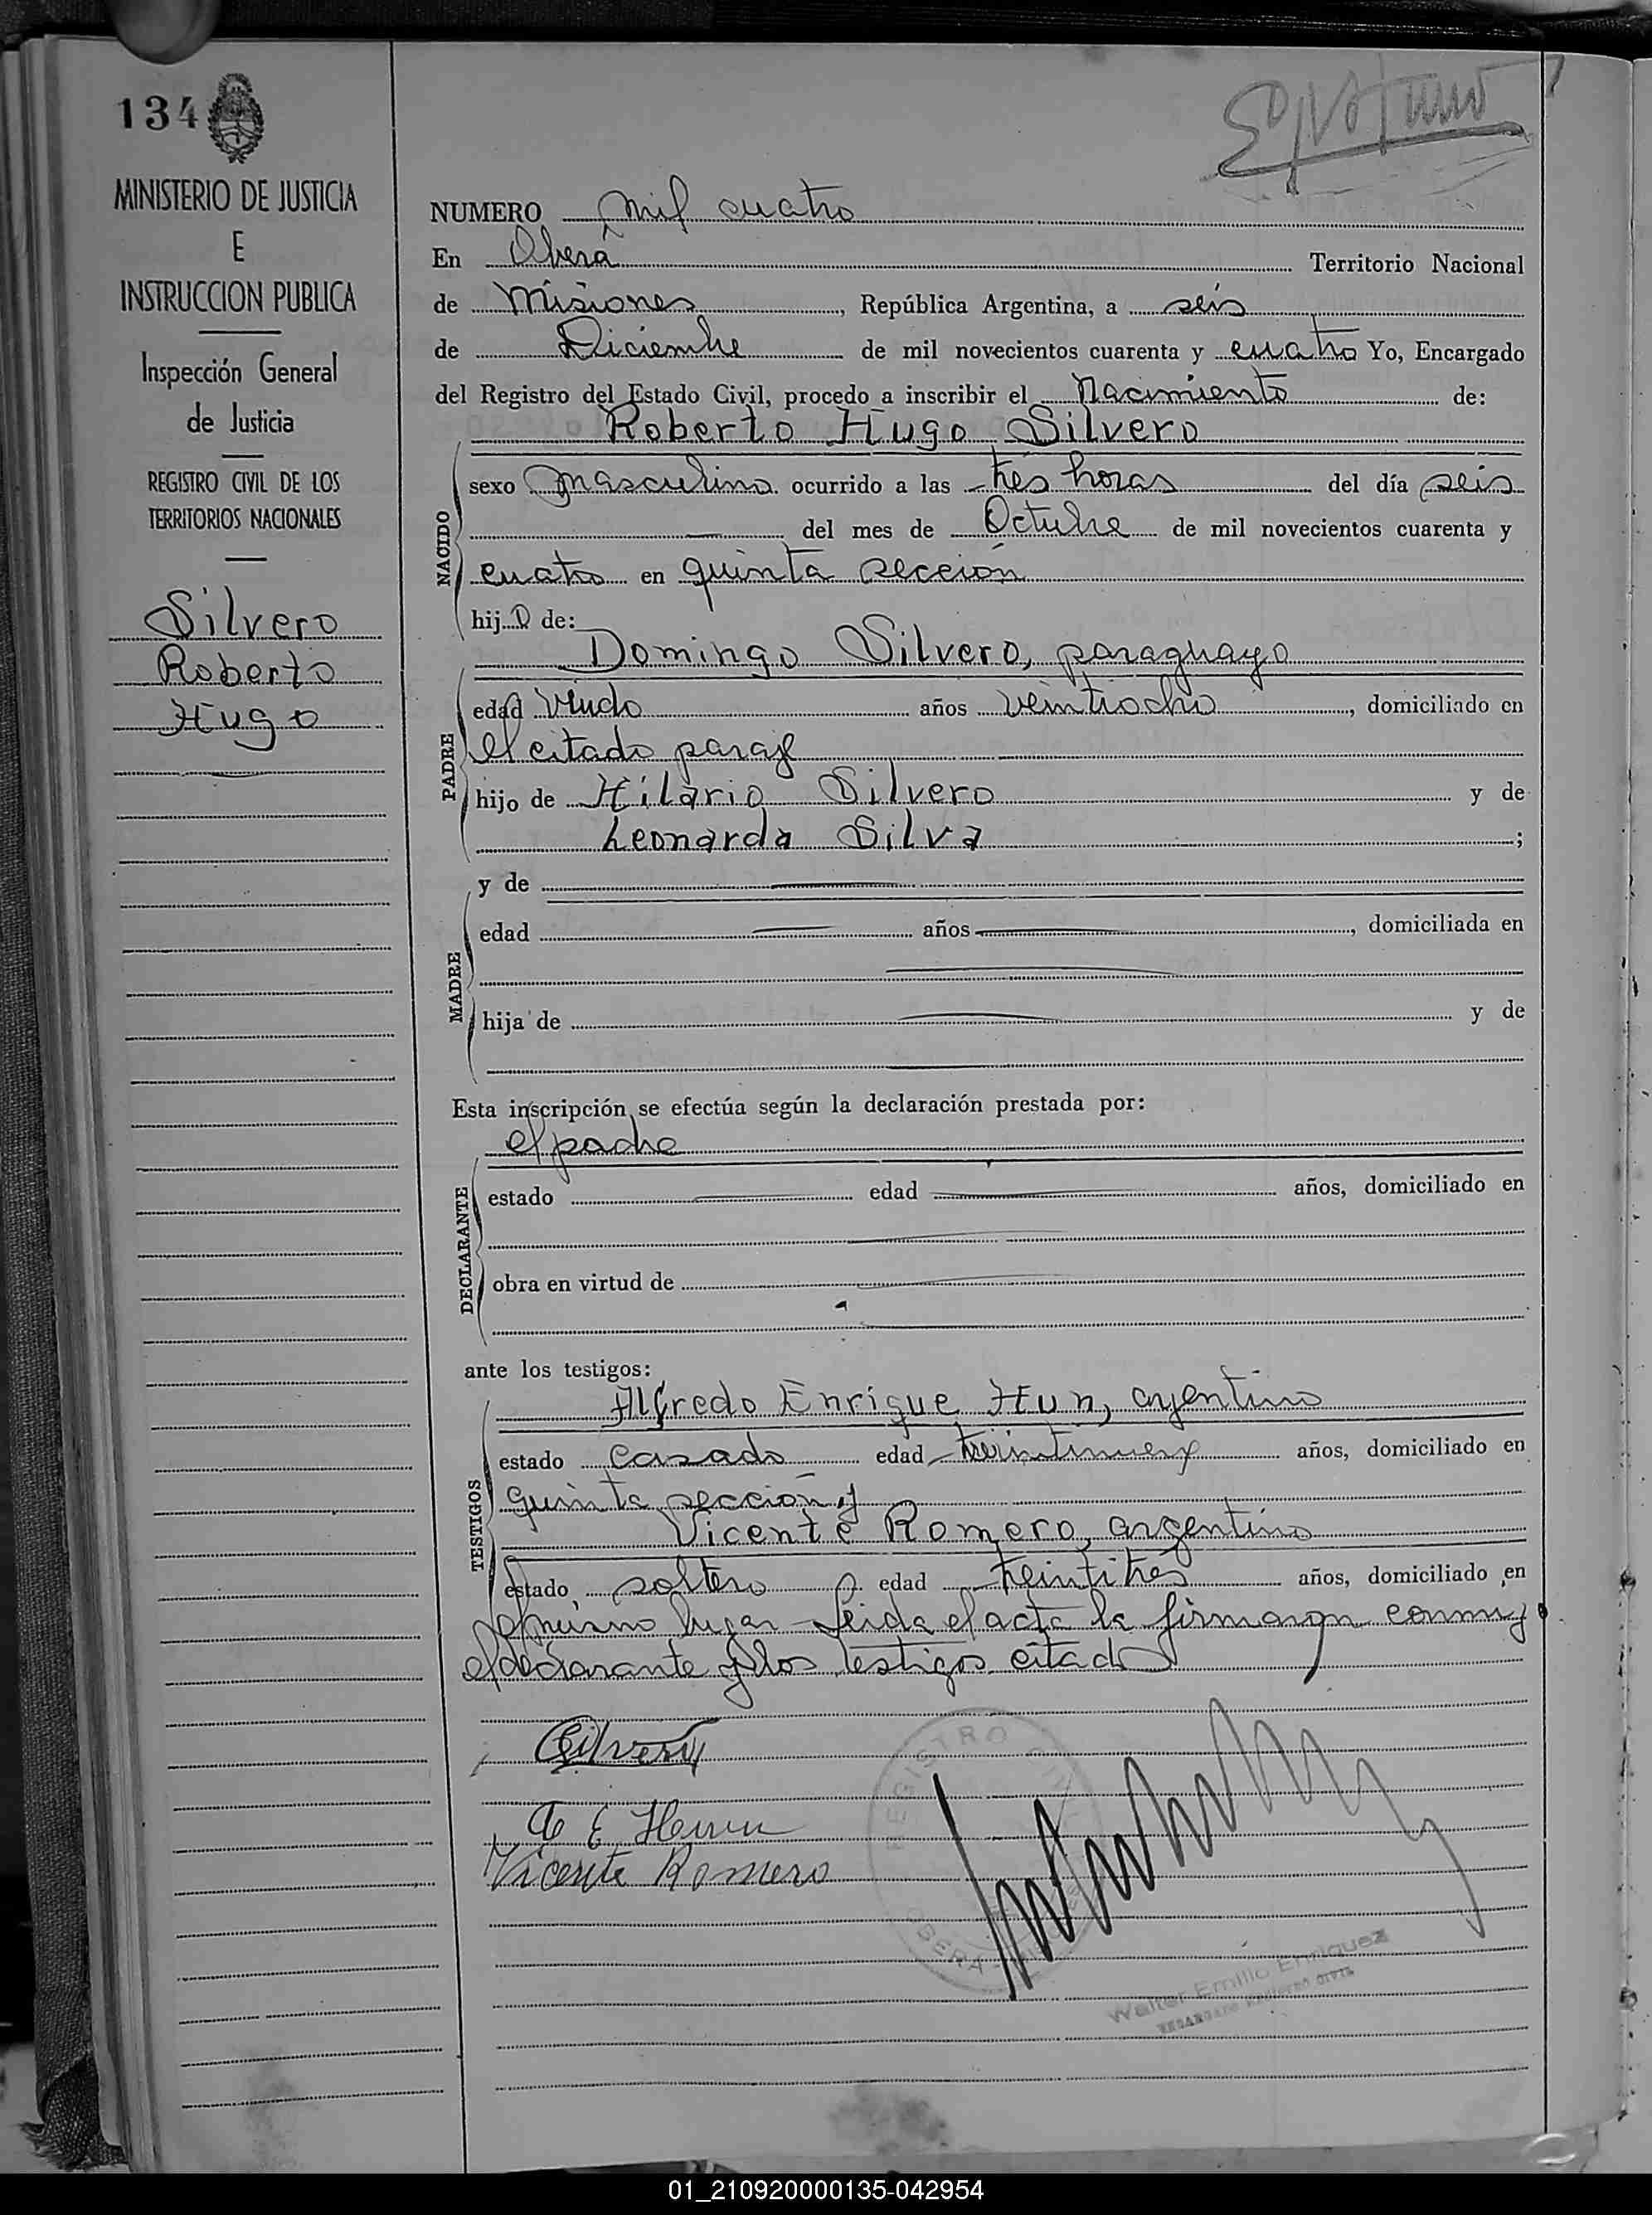 134
MINISTERIO DE JUSTICIA
E
INSTRUCCION PUBLICA
Inspección General
de Justicia
REGISTRO CIVIL DE LOS
TERRITORIOS NACIONALES
Silvero
Roberto
Hugo
NUMERO mil cuatro
En Oberá Territorio Nacional
de Misiones, República Argentina, a seis
de Diciembre de mil novecientos cuarenta y cuatro Yo, Encargado
del Registro del Estado Civil, procedo a inscribir el Nacimiento de:
Roberto Hugo Silvero
NACIDO
sexo masculino ocurrido a las tres horas del día seis
del mes de Octubre de mil novecientos cuarenta y
cuatro en quinta seccion
hijo de:
Domingo Silvero, paraguayo
PADRE
edad viudo años veintiocho, domiciliado en
el citado paraje
hijo de Hilario Silvero y de
Leonarda Silva ;
y de
MADRE
edad años , domiciliada en
hija de y de
Esta inscripción se efectúa según la declaración prestada por:
el padre
DECLARANTE
estado edad años, domiciliado en
obra en virtud de
ante los testigos:
Alfredo Enrique Hun, argentino
TESTIGOS
estado casado edad años, domiciliado en
quinta seccion y
Vicente Romero, argentino
estado soltero edad treintitres años, domiciliado en
el mismo lugar Leida el acta la firmaron conmigo
el declarante y los testigos citados
Silvero
A E
Vicente Romero
REGISTRO CIVIL
OBERA
Walter Emilio Enriquez
ENCARGADO REGISTRO CIVIL
01_210920000135-042954